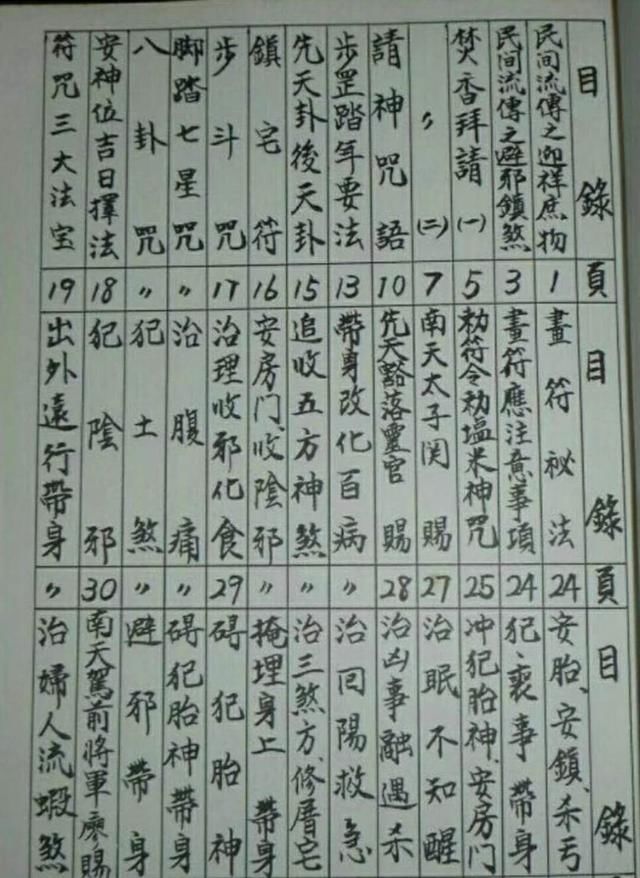 目錄 頁
民間流傳之迎祥庶物 1
民間流傳之避邪鎮煞 3
焚香拜請(一) 5
〃(二) 7
請神咒語 10
步罡踏年要法 13
先天卦後天卦 15
鎮宅符 16
步斗咒 17
脚踏七星咒 〃
八卦咒 〃
安神位吉日擇法 18
符咒三大法宝 19
目錄 頁
畫符祕法 24
畫符應注意事項 24
勅符令勅塩米神咒 25
南天太子関賜 27
先天豁落靈官賜 28
帶身改化百病 〃
追收五方神煞 〃
安房门、收陰邪 〃
治理收邪化食 29
治腹痛 〃
犯土煞 〃
犯陰邪 30
出外遠行帶身 〃
目錄
安胎、安鎮、杀丐
犯、喪事帶身
冲犯胎神、安房门
治眠不知醒
治凶事融遇杀
治回陽救急
治三煞方、修厝宅
掩埋身上帶身
碍犯胎神
碍犯胎神帶身
避邪帶身
南天駕前將軍廖賜
治婦人流蝦煞